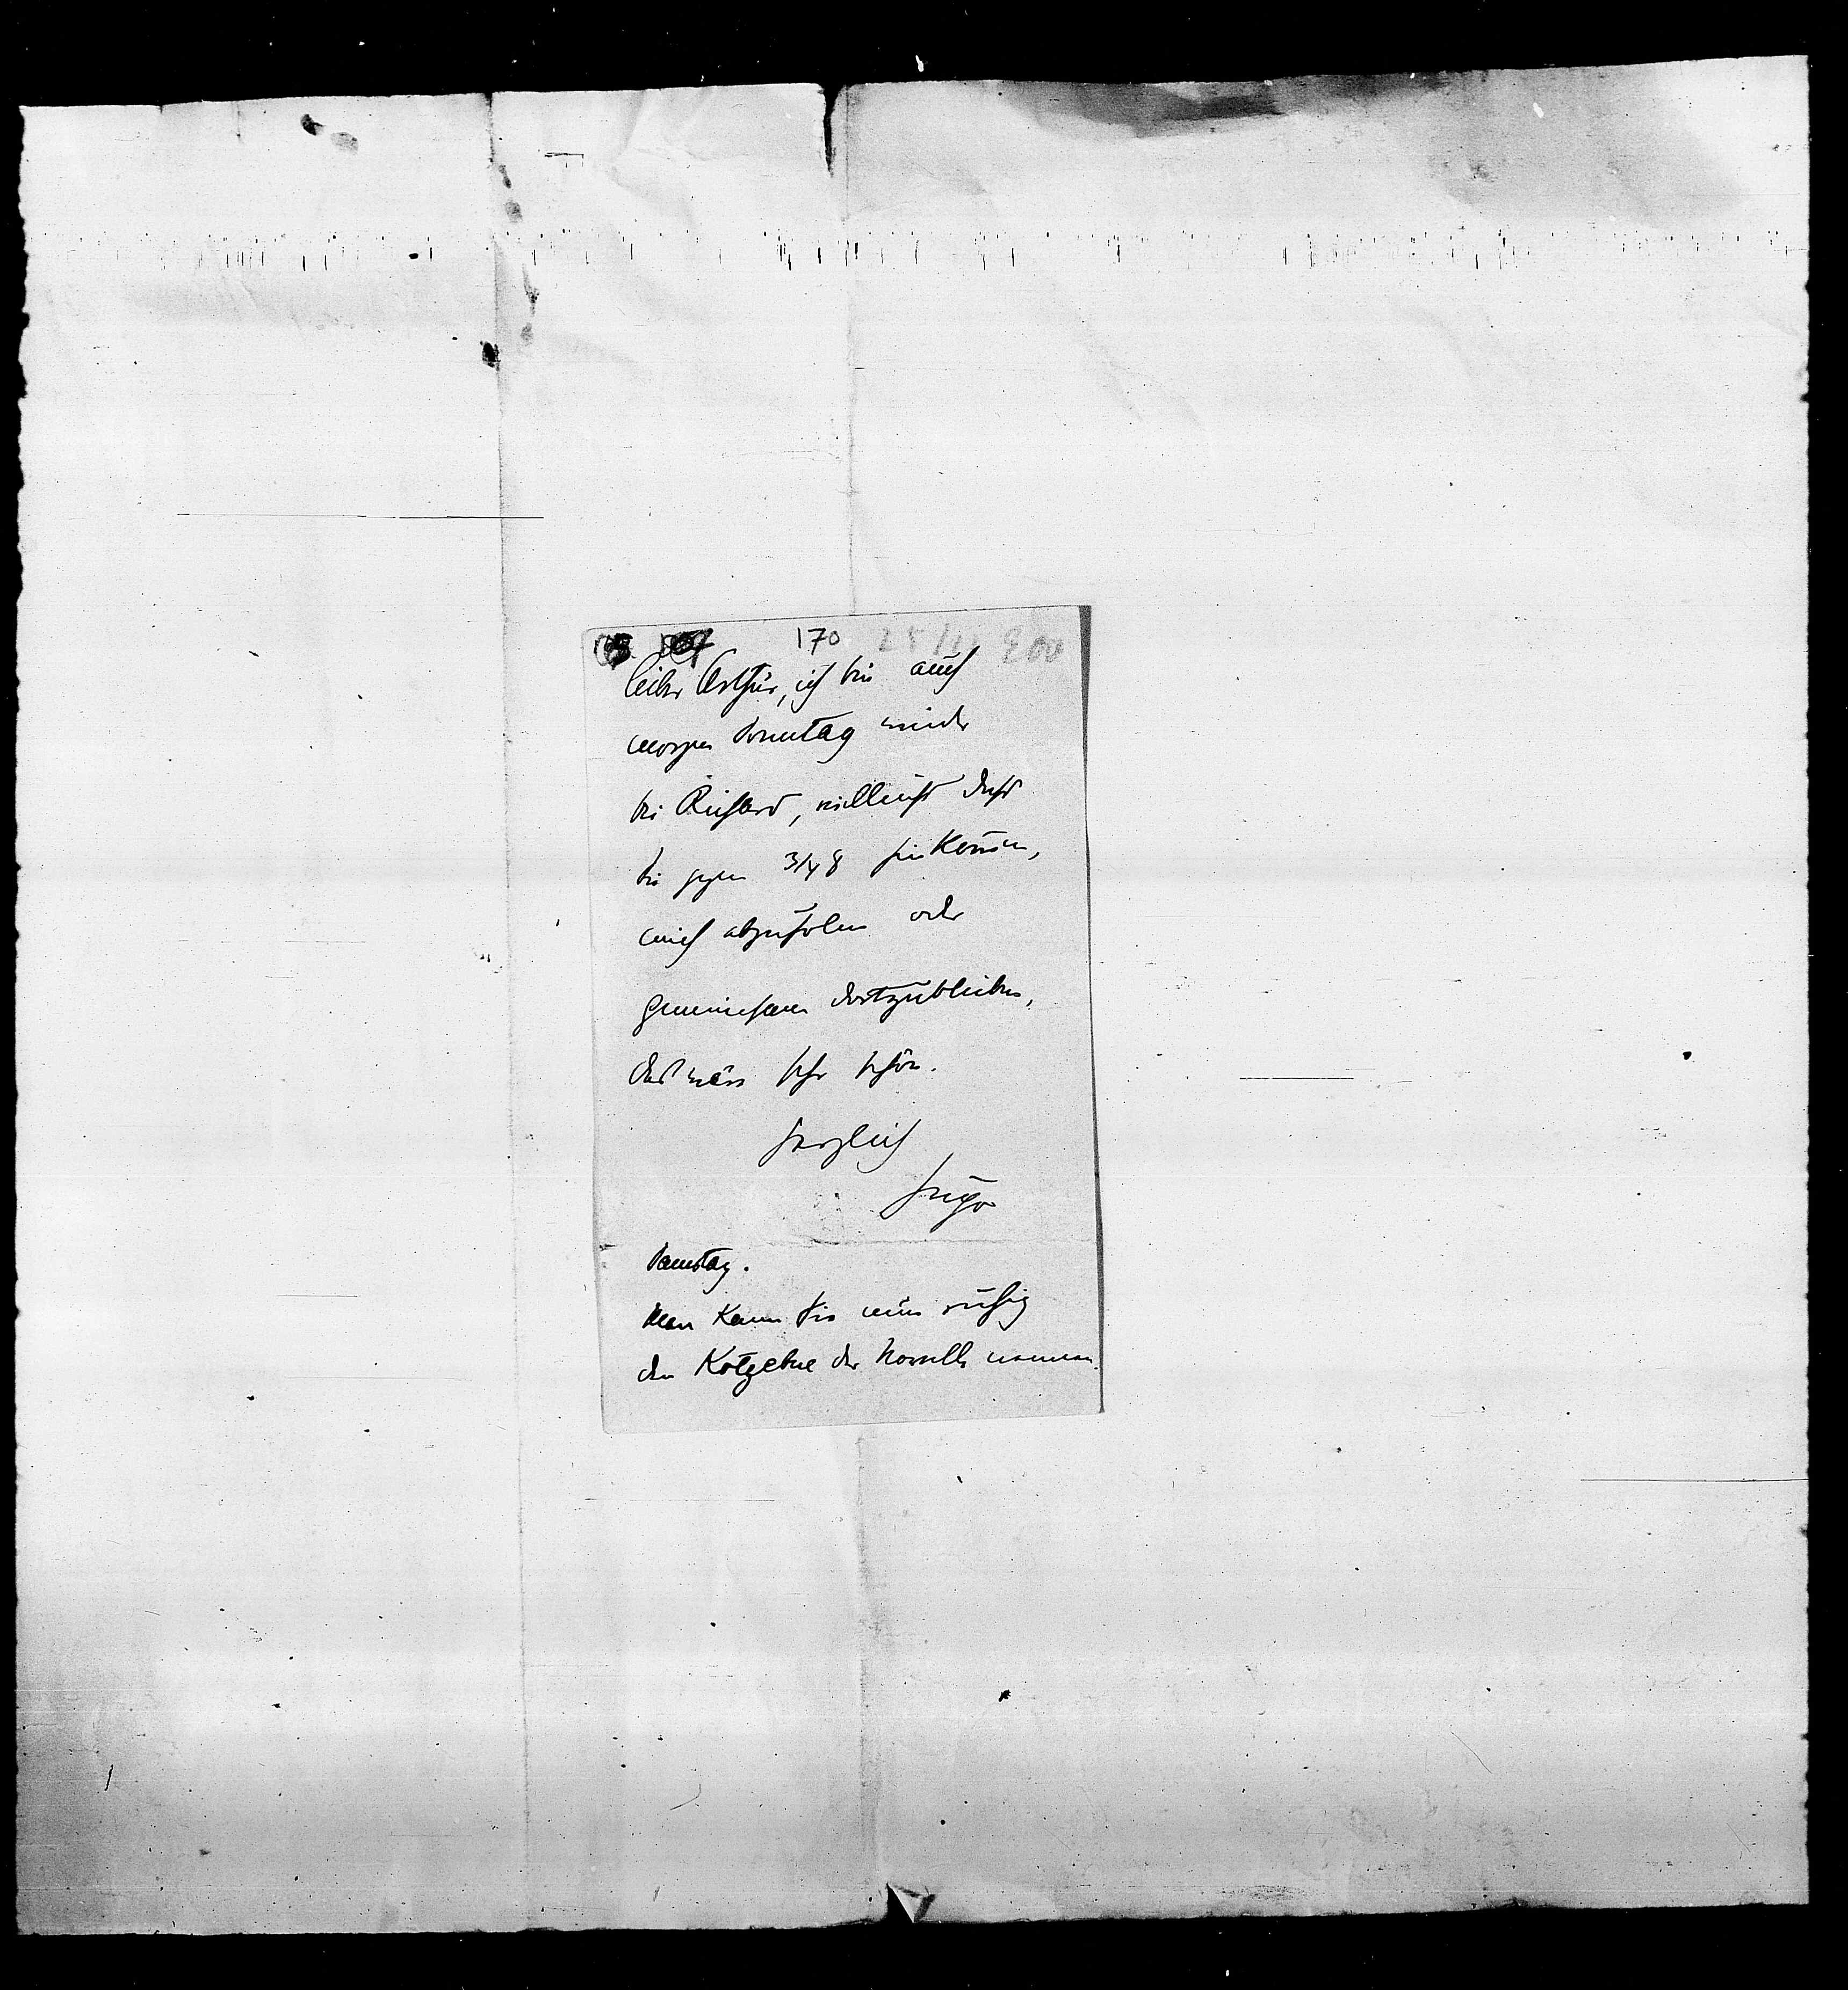 170 25/11 900
lieber Arthur, ich bin auch
morgen Sonntag wieder
bei Richard, vielleicht daß
Sie gegen 3/4 8 hinkommen,
mich abzuholen oder
gemeinsam dortzubleiben,
das wäre sehr schön.
herzlich
Hugo
Samstag.
Man kann Sie nun ruhig
den Kotzebue der Novelle nennen.